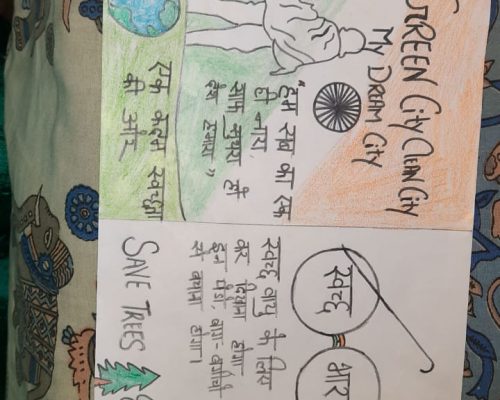 GREEN City CleAN City
My DREAM City
"हम सब का एक
ही नारा,
साफ सुथरा हो
देश हमारा"
एक कदम स्वच्छता
की ओर
स्वच्छ
स्वच्छ वायु के लिए
कर दिखाना होगा
इन पेडो, बाग-बगीचो
को बचाना होगा।
SAVE TREES